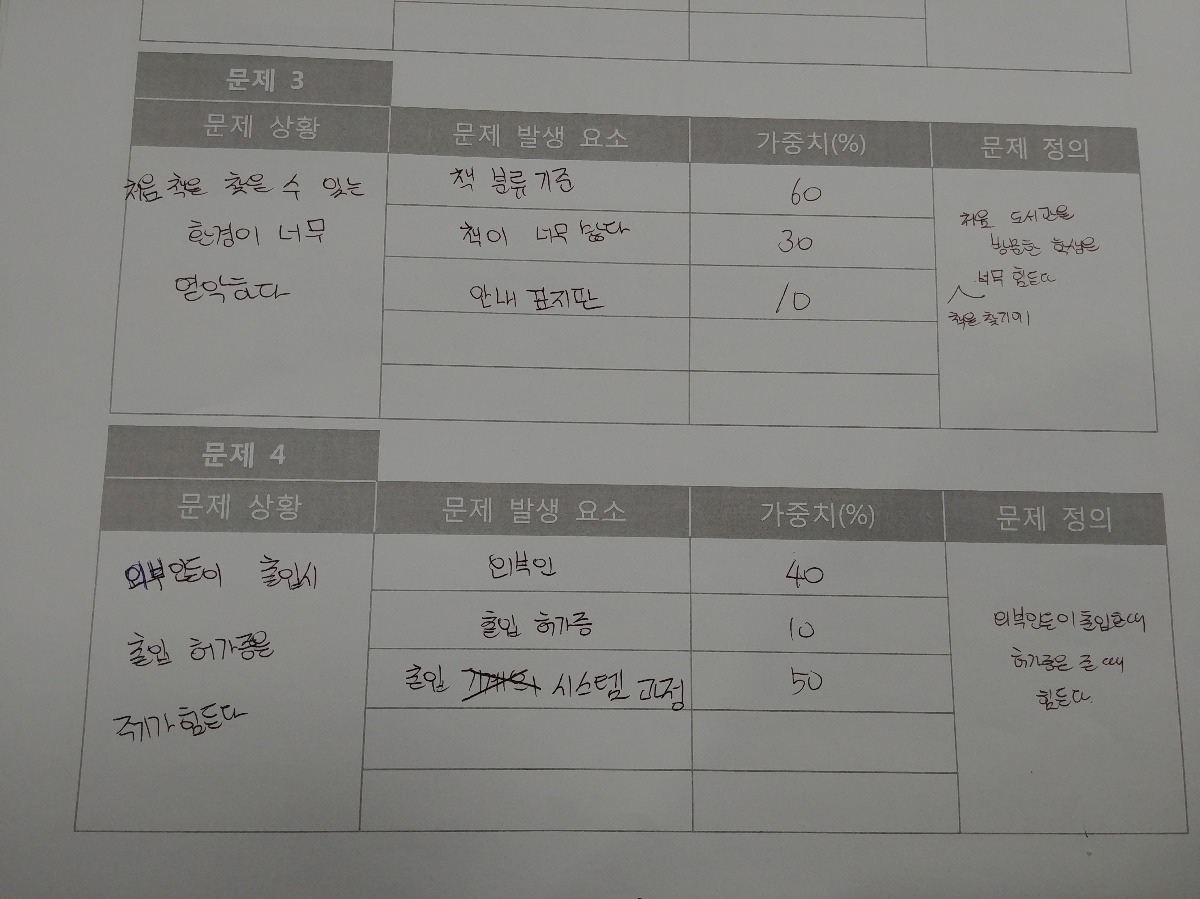 문제 3
문제 상황
문제 발생 요소
가중치(%)
문제 정의
처음 책을 찾을 수 있는
환경이 너무
열악하다
책 분류 기준
60
책이 너무 많다
30
안내 표지판
10
처음 도서관을
방문한 학생은
너무 힘든다
책을 찾기에
문제 4
문제 상황
문제 발생 요소
가중치(%)
문제 정의
외부인들이 출입시
출입 허가증을
주기가 힘든다
외부인
40
출입 허가증
10
출입 시스템 과정
50
외부인들이 출입할때
허가증은 줄 때
힘든다.